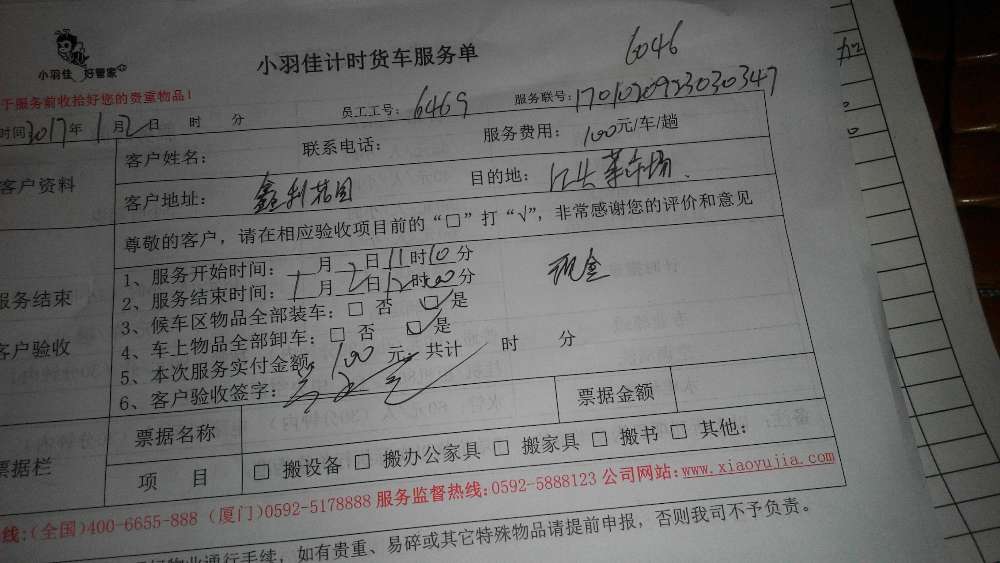 6046
小羽佳 好管家
小羽佳计时货车服务单
于服务前收拾好您的贵重物品!
时间2017年1月2日 时 分 员工工号:6469 服务联号:1701020923030347
客户资料
客户姓名: 联系电话: 服务费用:100元/车/趟
客户地址:鑫利花园 目的地:江头菜市场
尊敬的客户,请在相应验收项目前的“□”打“√”,非常感谢您的评价和意见
服务结束
客户验收
1、服务开始时间:1月2日11时10分
2、服务结束时间:1月2日12时00分 现金
3、候车区物品全部装车:□ 否 ☑是
4、车上物品全部卸车:□ 否 ☑是
5、本次服务实付金额:100元,共计 时 分
6、客户验收签字:
票据栏
票据名称 票据金额
项 目 □ 搬设备 □ 搬办公家具 □ 搬家具 □ 搬书 □ 其他:
线:(全国)400-6655-888 (厦门)0592-5178888 服务监督热线:0592-5888123 公司网站:www.xiaoyujia.com
物业通行手续,如有贵重、易碎或其它特殊物品请提前申报,否则我司不予负责。